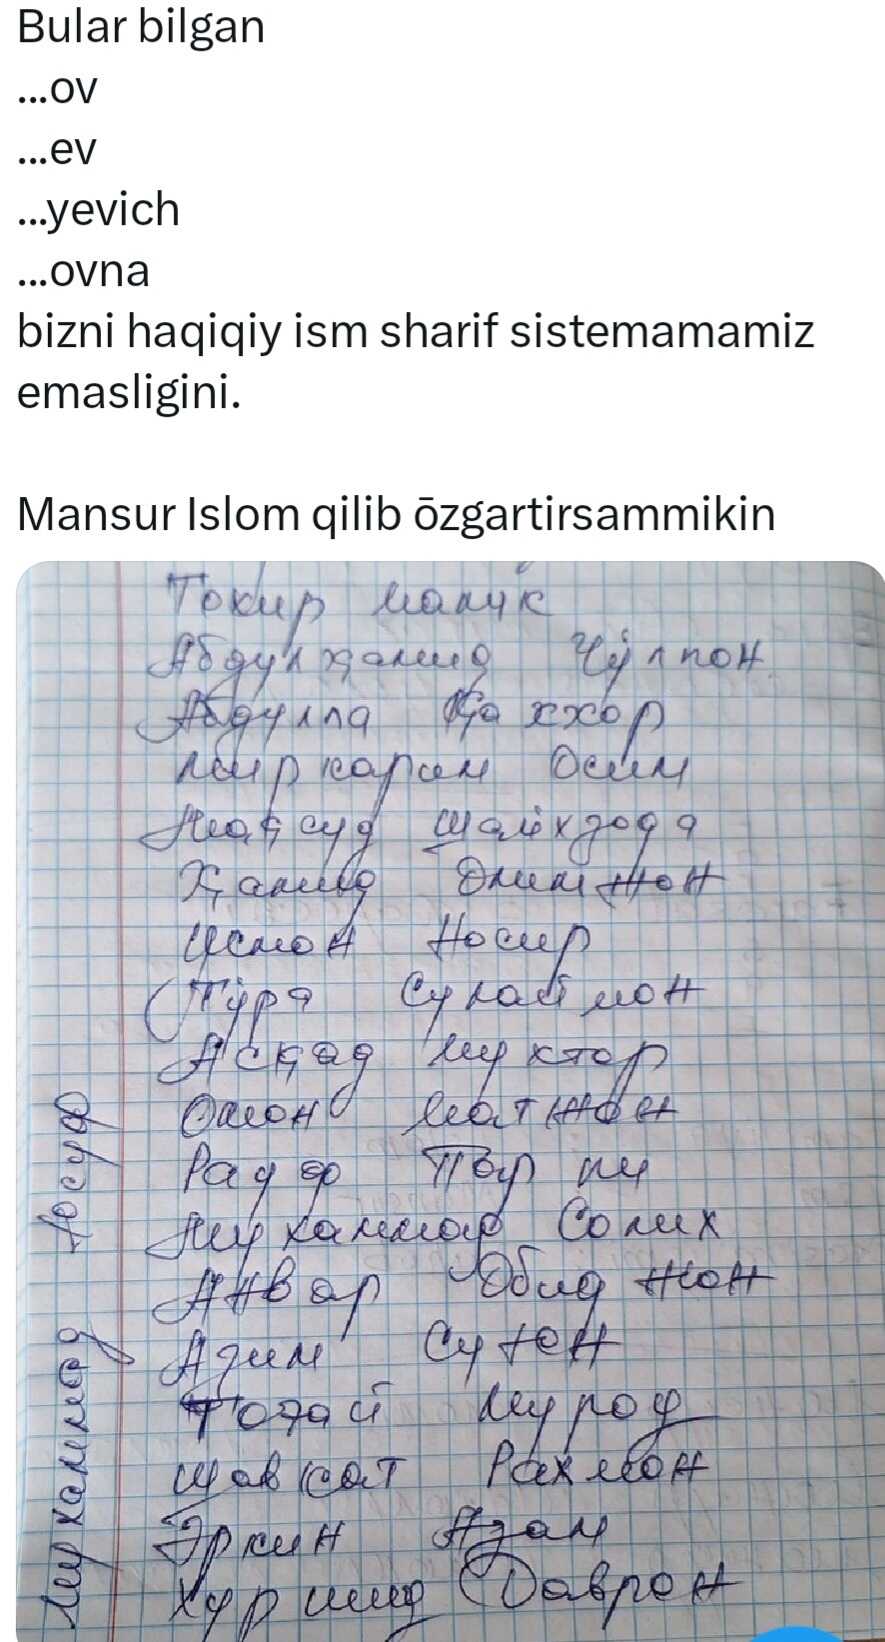 Bular bilgan
...ov
...ev
...yevich
...ovna
bizni haqiqiy ism sharif sistemamamiz
emasligini.
Mansur Islom qilib ōzgartirsammikin
Тохир Малик
Абдулҳамид Чўлпон
Абдулла Қаххор
Миркарим Осим
Мақсуд Шайхзода
Ҳамид Олимжон
Усмон Носир
Тўра Сулаймон
Асқад Мухтор
Омон Матжон
Рауф Парпи
Мухаммад Солих
Анвар Обиджон
Азим Суюн
Тоғай Мурод
Шавкат Рахмон
Эркин Аъзам
Хуршид Даврон
Мухаммад Юсуф